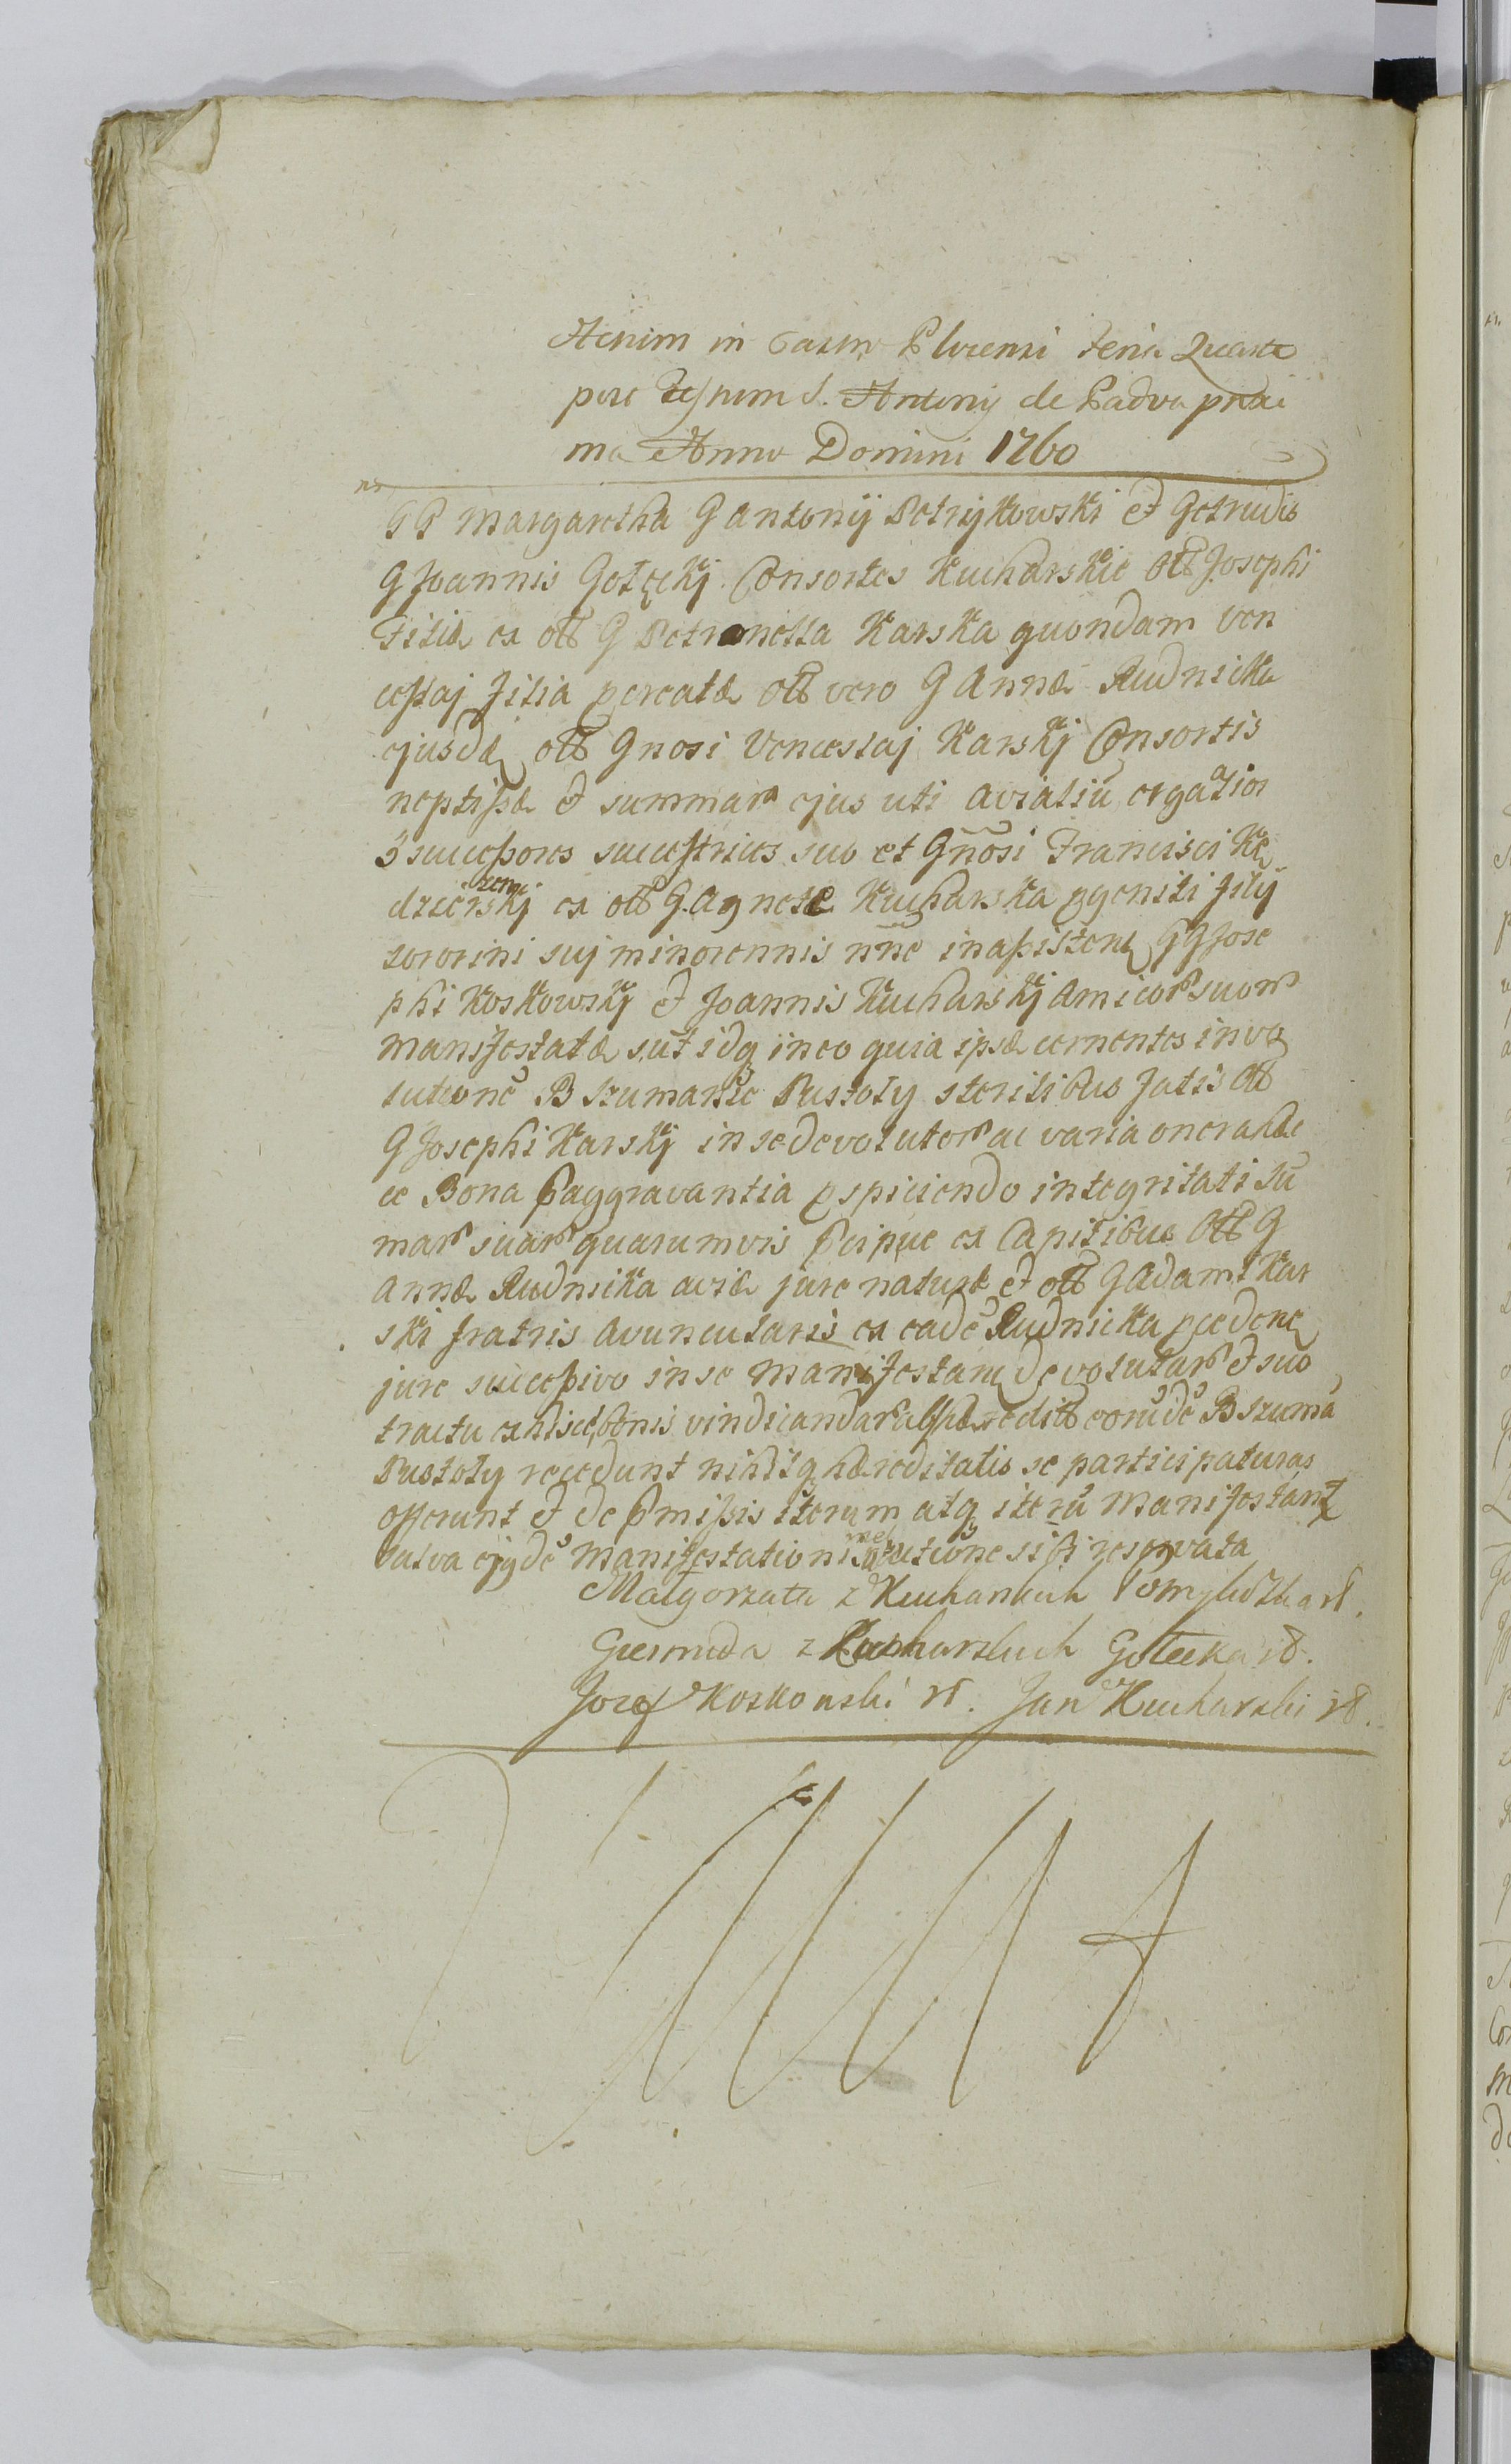 Actum in Castro Plocensi Feria Quarta
post Festum S. Antonij de Padva proxi
ma Anno Domini 1760
GG Margaretha G Antonij Petrykowski et Getrudis
G Joannis Gołęckj Consortes Kucharskie Olb Josephi
Filiæ ex olb G Petronella Karska quondam Ven
ceslaj filia procreatæ olb vero G Annæ Rudnicka
ejusdē olb Gnosi Venceslaj Karskj Consortis
neptisæ et summar ejus uti avialiū
successores successtrices suo et Gnōsi Francisci Kę
dzierskj ex olb G. Agnete Kucharska pgeniti filij
sororini suj minorennis nnē in assistent GG Jose
phi Koskowskj et Joannis Kucharskj amicor suor
manifestatæ sūt idq ineo quia ipsæ cernentes invo
lutionē B Szumanie Pustoły sterilibus fatis olb
G Josephi Karskj in se devolutor ac varia onera hæ
ce Bona paggravantia pspiciendo integritati sū
mar suar quarumvis pcipue ex Capitibus Olb G
Annæ Rudnicka aviæ jure naturæ et olb G Adami Kar
ski fratris avuncularis ex eadē Rudnicka pcedent
jure successivo in se manifestant devolutar et suo
tractu ex hisce bonis vindicandar ab hæredit eorūdē B Szuma
Pustoły recedunt nihilq hæreditatis se participaturas
offerunt et de pmissis iterum atq iterū manifestant
salva ejgdē manifestationis mel utione sibi reservata
Małgorzata z Kucharskich
Giertruda z Kucharskich Gołecka
Jozef Koskowski Jan Kucharski